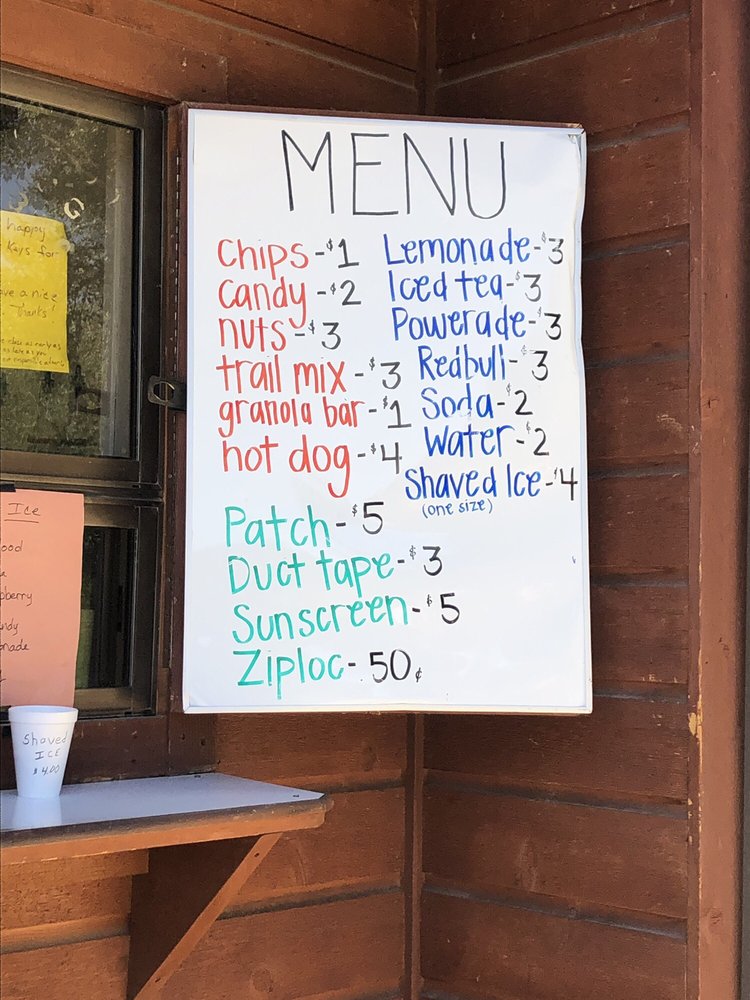 MENU
Chips - $1
Candy - $2
nuts - $3
trail mix - $3
granola bar - $1
hot dog - $4
Lemonade - $3
Iced tea - $3
Powerade - $3
Redbull - $3
Soda - $2
Water - $2
Shaved Ice - $4
(one size)
Patch - $5
Duct tape - $3
Sunscreen - $5
Ziploc - 50¢
happy
Keys for
have a nice
Thanks!
Ice
Shaved
ICE
$4.00